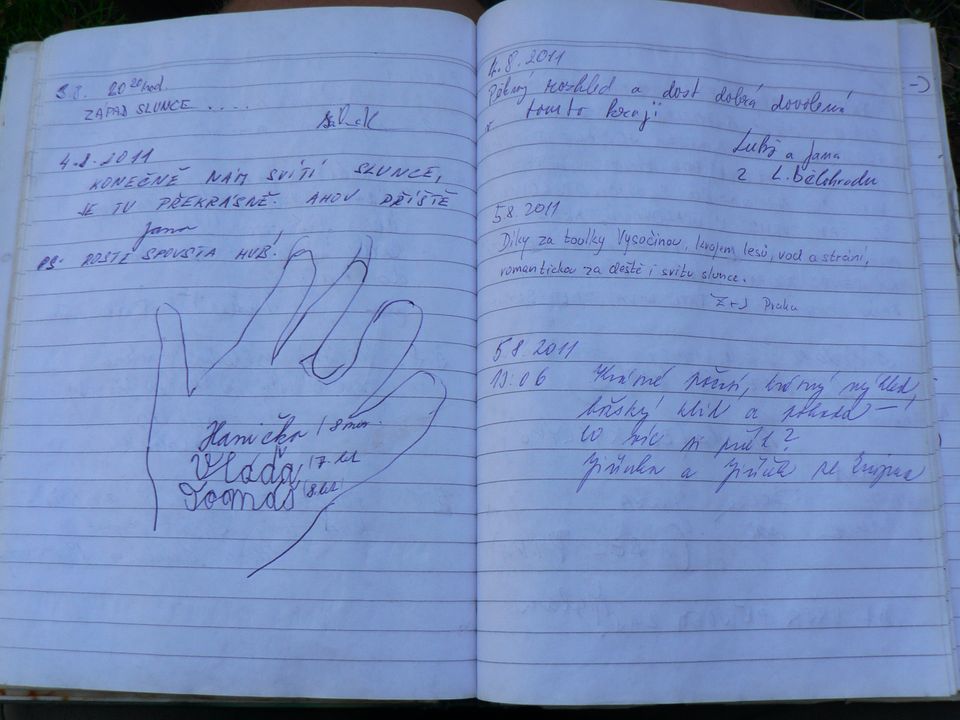 3 8. 20 20 hod.
ZÁPAD SLUNCE . . . .
4.8.2011
KONEČNĚ NÁM SVÍTÍ SLUNCE,
JE TU PŘEKRÁSNĚ. AHOJ PŘÍŠTĚ
Jana
PS: ROSTE SPOUSTA HUB!
Hanička (8 měs.
Vláďa (7 let
Tomáš (8 let)
4.8.2011
Pěkný rozhled a dost dobrá dovolená
v tomto kraji
Luboš a Jana
z L. Bělohradu
5.8.2011
Díky za toulky Vysočinou, krajem lesů, vod a strání,
romantickou za deště i svitu slunce.
Z+J Praha
5.8.2011
19:06 Krásné počasí, krásný výhled,
božský klid a pohoda –
co víc si přát?
Jiřinka a Jiříček ze